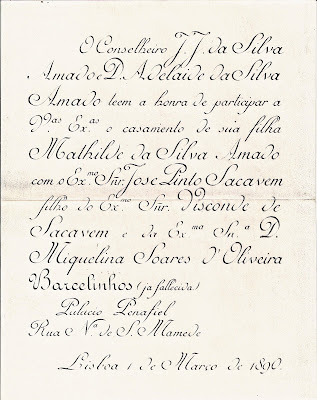 O Conselheiro J. J. da Silva
Amado e D. Adelaide da Silva
Amado teem a honra de participar a
V.as Ex.as o casamento de sua filha
Mathilde da Silva Amado
com o Ex.mo Snr. Jose Pinto Sacavem
filho do Ex.mo Snr. Visconde de
Sacavem e da Ex.ma Sn.a D.
Miquelina Soares d'Oliveira
Barcelinhos (ja fallecida)
Palacio Penafiel
Rua N.a de S. Mamede
Lisboa 1 de Março de 1890.